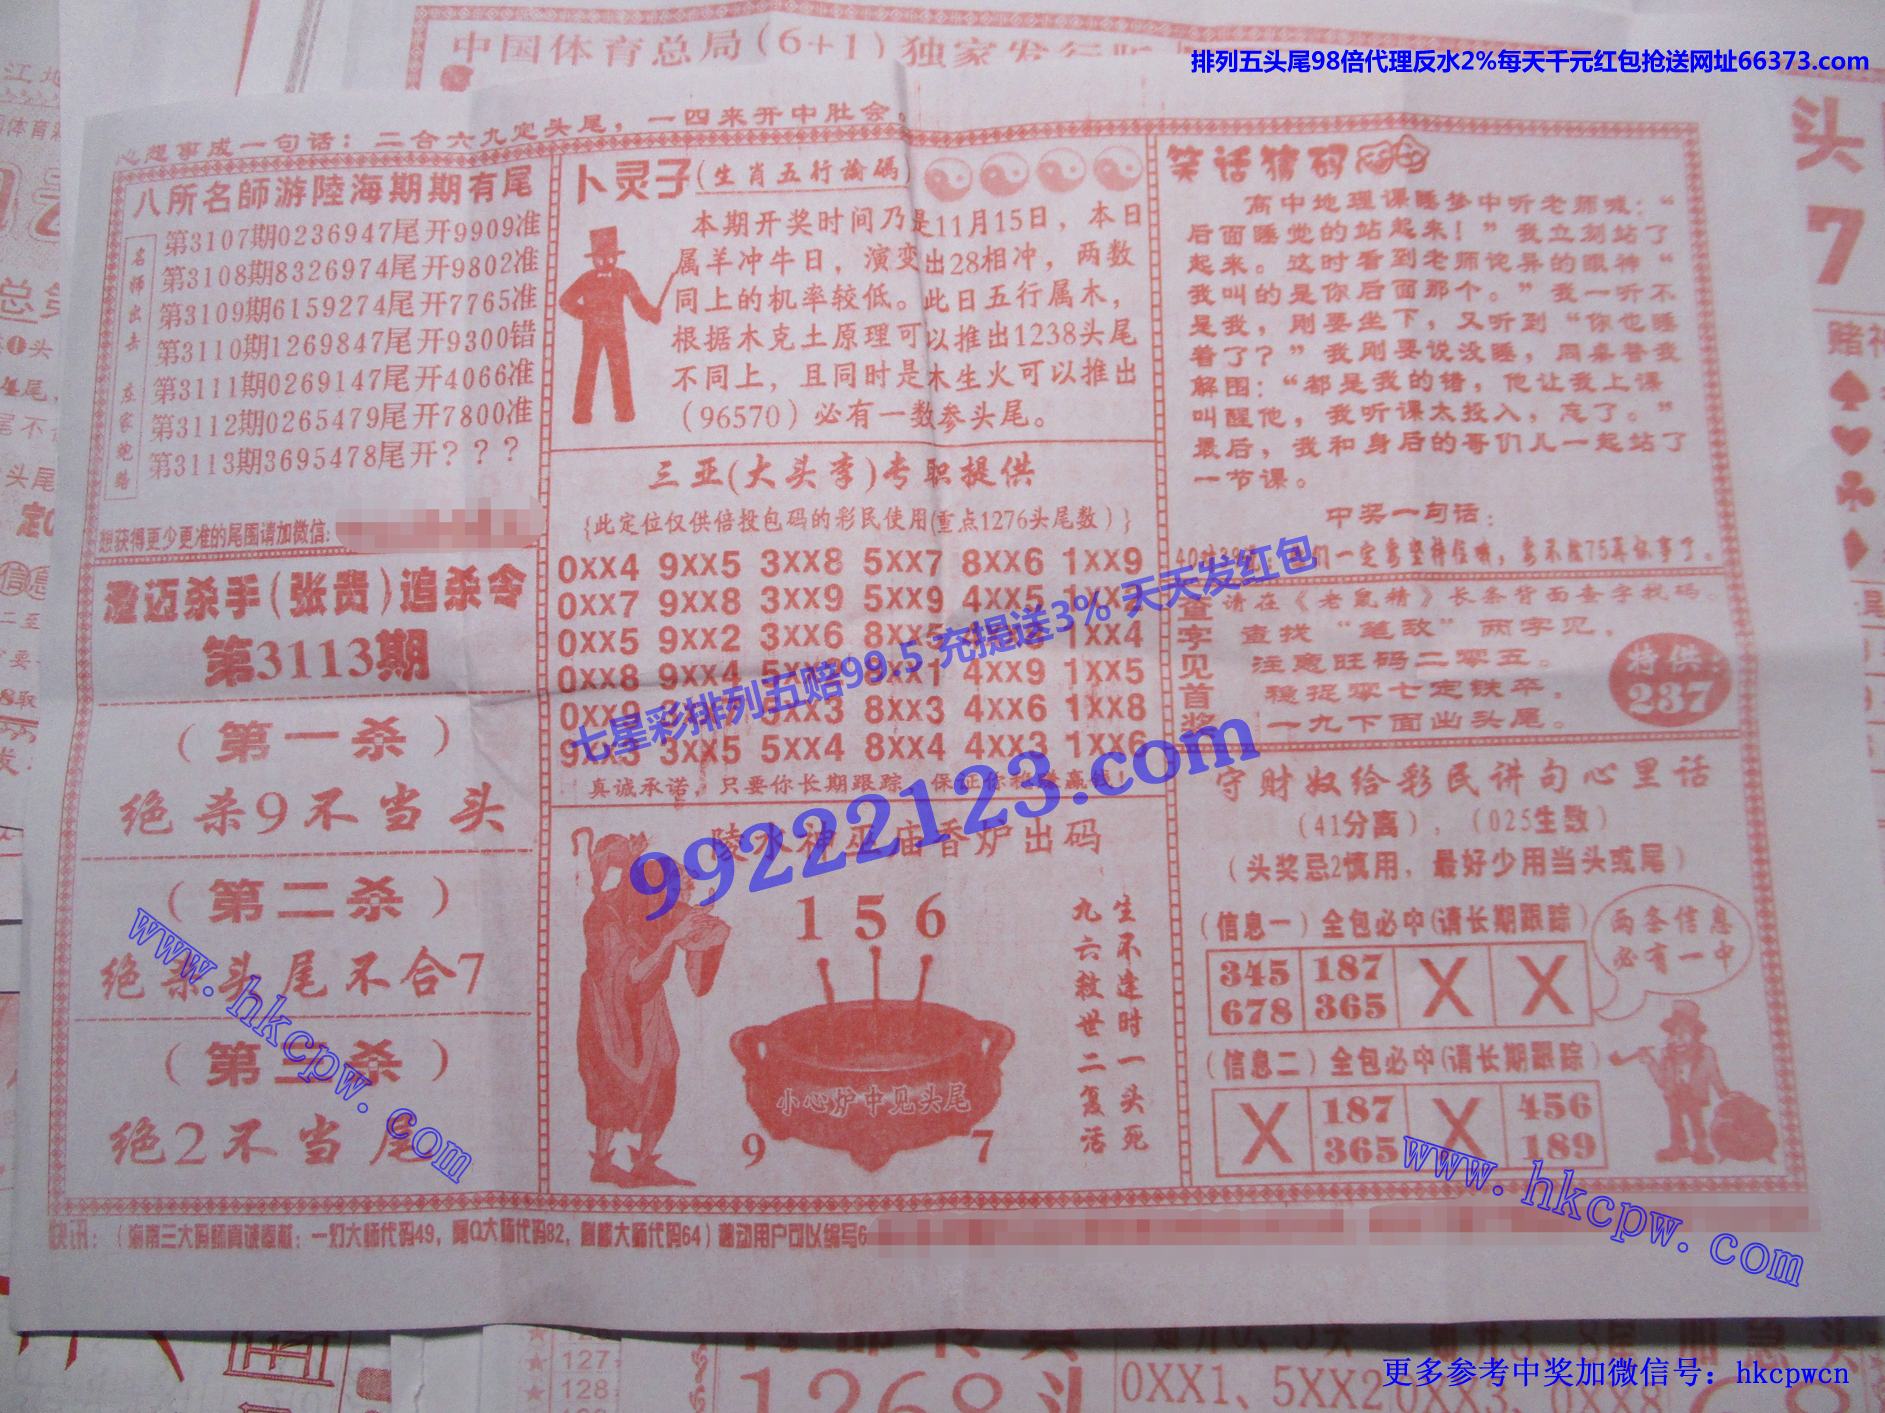 中国体育总局(6+1)独家发行
排列五头尾98倍代理反水2%每天千元红包抢送网址66373.com
心想事成一句话：二合六九定头尾，一四来开中肚会。
八所名師游陸海期期有尾
名师出击
在家跑路
第3107期0236947尾开9909准
第3108期8326974尾开9802准
第3109期6159274尾开7765准
第3110期1269847尾开9300错
第3111期0269147尾开4066准
第3112期0265479尾开7800准
第3113期3695478尾开？？？
想获得更少更准的尾围请加微信:
澄迈杀手(张贵)追杀令
第3113期
(第一杀)
绝杀9不当头
(第二杀)
绝杀头尾不合7
(第三杀)
绝2不当尾
卜灵子(生肖五行論碼)
本期开奖时间乃是11月15日，本日
属羊冲牛日，演变出28相冲，两数
同上的机率较低。此日五行属木，
根据木克土原理可以推出1238头尾
不同上，且同时是木生火可以推出
（96570）必有一数参头尾。
三亚(大头李)专职提供
{此定位仅供倍投包码的彩民使用(重点1276头尾数)}
0XX4 9XX5 3XX8 5XX7 8XX6 1XX9
0XX7 9XX8 3XX9 5XX9 4XX5
0XX5 9XX2 3XX6 1XX4
0XX8 9XX4 4XX9 1XX5
8XX3 4XX6 1XX8
9XX3 3XX5 5XX4 8XX4 4XX3 1XX6
真诚承诺，只要你长期跟踪，保证你稳赚赢钱！
七星彩排列五赔99.5 充提送3% 天天发红包
99222123.com
陵水神巫庙香炉出码
1 5 6
小心炉中见头尾
9 7
生不逢时一头死
九六救世二复活
笑话猜码
高中地理课睡梦中听老师喊：“
后面睡觉的站起来！”我立刻站了
起来。这时看到老师诧异的眼神“
我叫的是你后面那个。”我一听不
是我，刚要坐下，又听到“你也睡
着了？”我刚要说没睡，同桌替我
解围：“都是我的错，他让我上课
叫醒他，我听课太投入，忘了。”
最后，我和身后的哥们儿一起站了
一节课。
中奖一句话：
查字见首奖
请在《老鼠精》长条背面查字找码。
查找“笔敌”两字见，
注意旺码二零五。
稳捉零七定铁卒，
一九下面出头尾。
特供：
237
守财奴给彩民讲句心里话
（41分离），（025生数）
（头奖忌2慎用，最好少用当头或尾）
(信息一)全包必中(请长期跟踪)
345 187 X X
678 365
两条信息
必有一中
(信息二)全包必中(请长期跟踪)
X 187 X 456
365 189
www.hkcpw.com
www.hkcpw.com
快讯：（海南三大码师真诚奉献：一幻大师代码49，尾Q大师代码82，财楼大师代码64）移动用户可以编写6
头
7
127
128
1268头
0XX1、5XX2
0XX3、0XX8
更多参考中奖加微信号：hkcpwcn